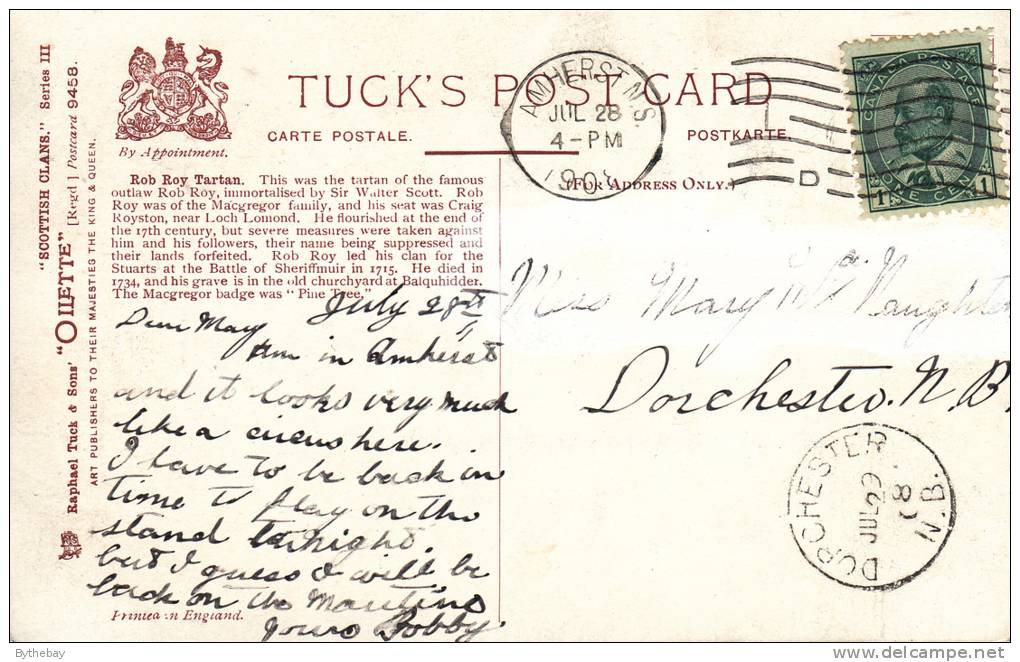 "SCOTTISH CLANS." Series III
"OILETTE" [Regd] Postcard 9458.
Raphael Tuck & Sons'
ART PUBLISHERS TO THEIR MAJESTIES THE KING & QUEEN.
By Appointment.
TUCK'S POST CARD
CARTE POSTALE.
POSTKARTE.
(FOR ADDRESS ONLY.)
AMHERST N.S.
JUL 28
4-PM
1908
D
CANADA POSTAGE
1 ONE CENT 1
Rob Roy Tartan. This was the tartan of the famous
outlaw Rob Roy, immortalised by Sir Walter Scott. Rob
Roy was of the Macgregor family, and his seat was Craig
Royston, near Loch Lomond. He flourished at the end of
the 17th century, but severe measures were taken against
him and his followers, their name being suppressed and
their lands forfeited. Rob Roy led his clan for the
Stuarts at the Battle of Sheriffmuir in 1715. He died in
1734, and his grave is in the old churchyard at Balquhidder.
The Macgregor badge was "Pine Tree."
July 28th
Dear May
Am in Amherst
and it looks very much
like a circus here.
I have to be back in
time to play on the
stand tonight.
but I guess I will be
back on the Maritime
Yours Bobby.
Printed in England.
Miss Mary McNaughton
Dorchester. N.B.
DORCHESTER N.B.
JUL 29
8
Bythebay
delcampe.net